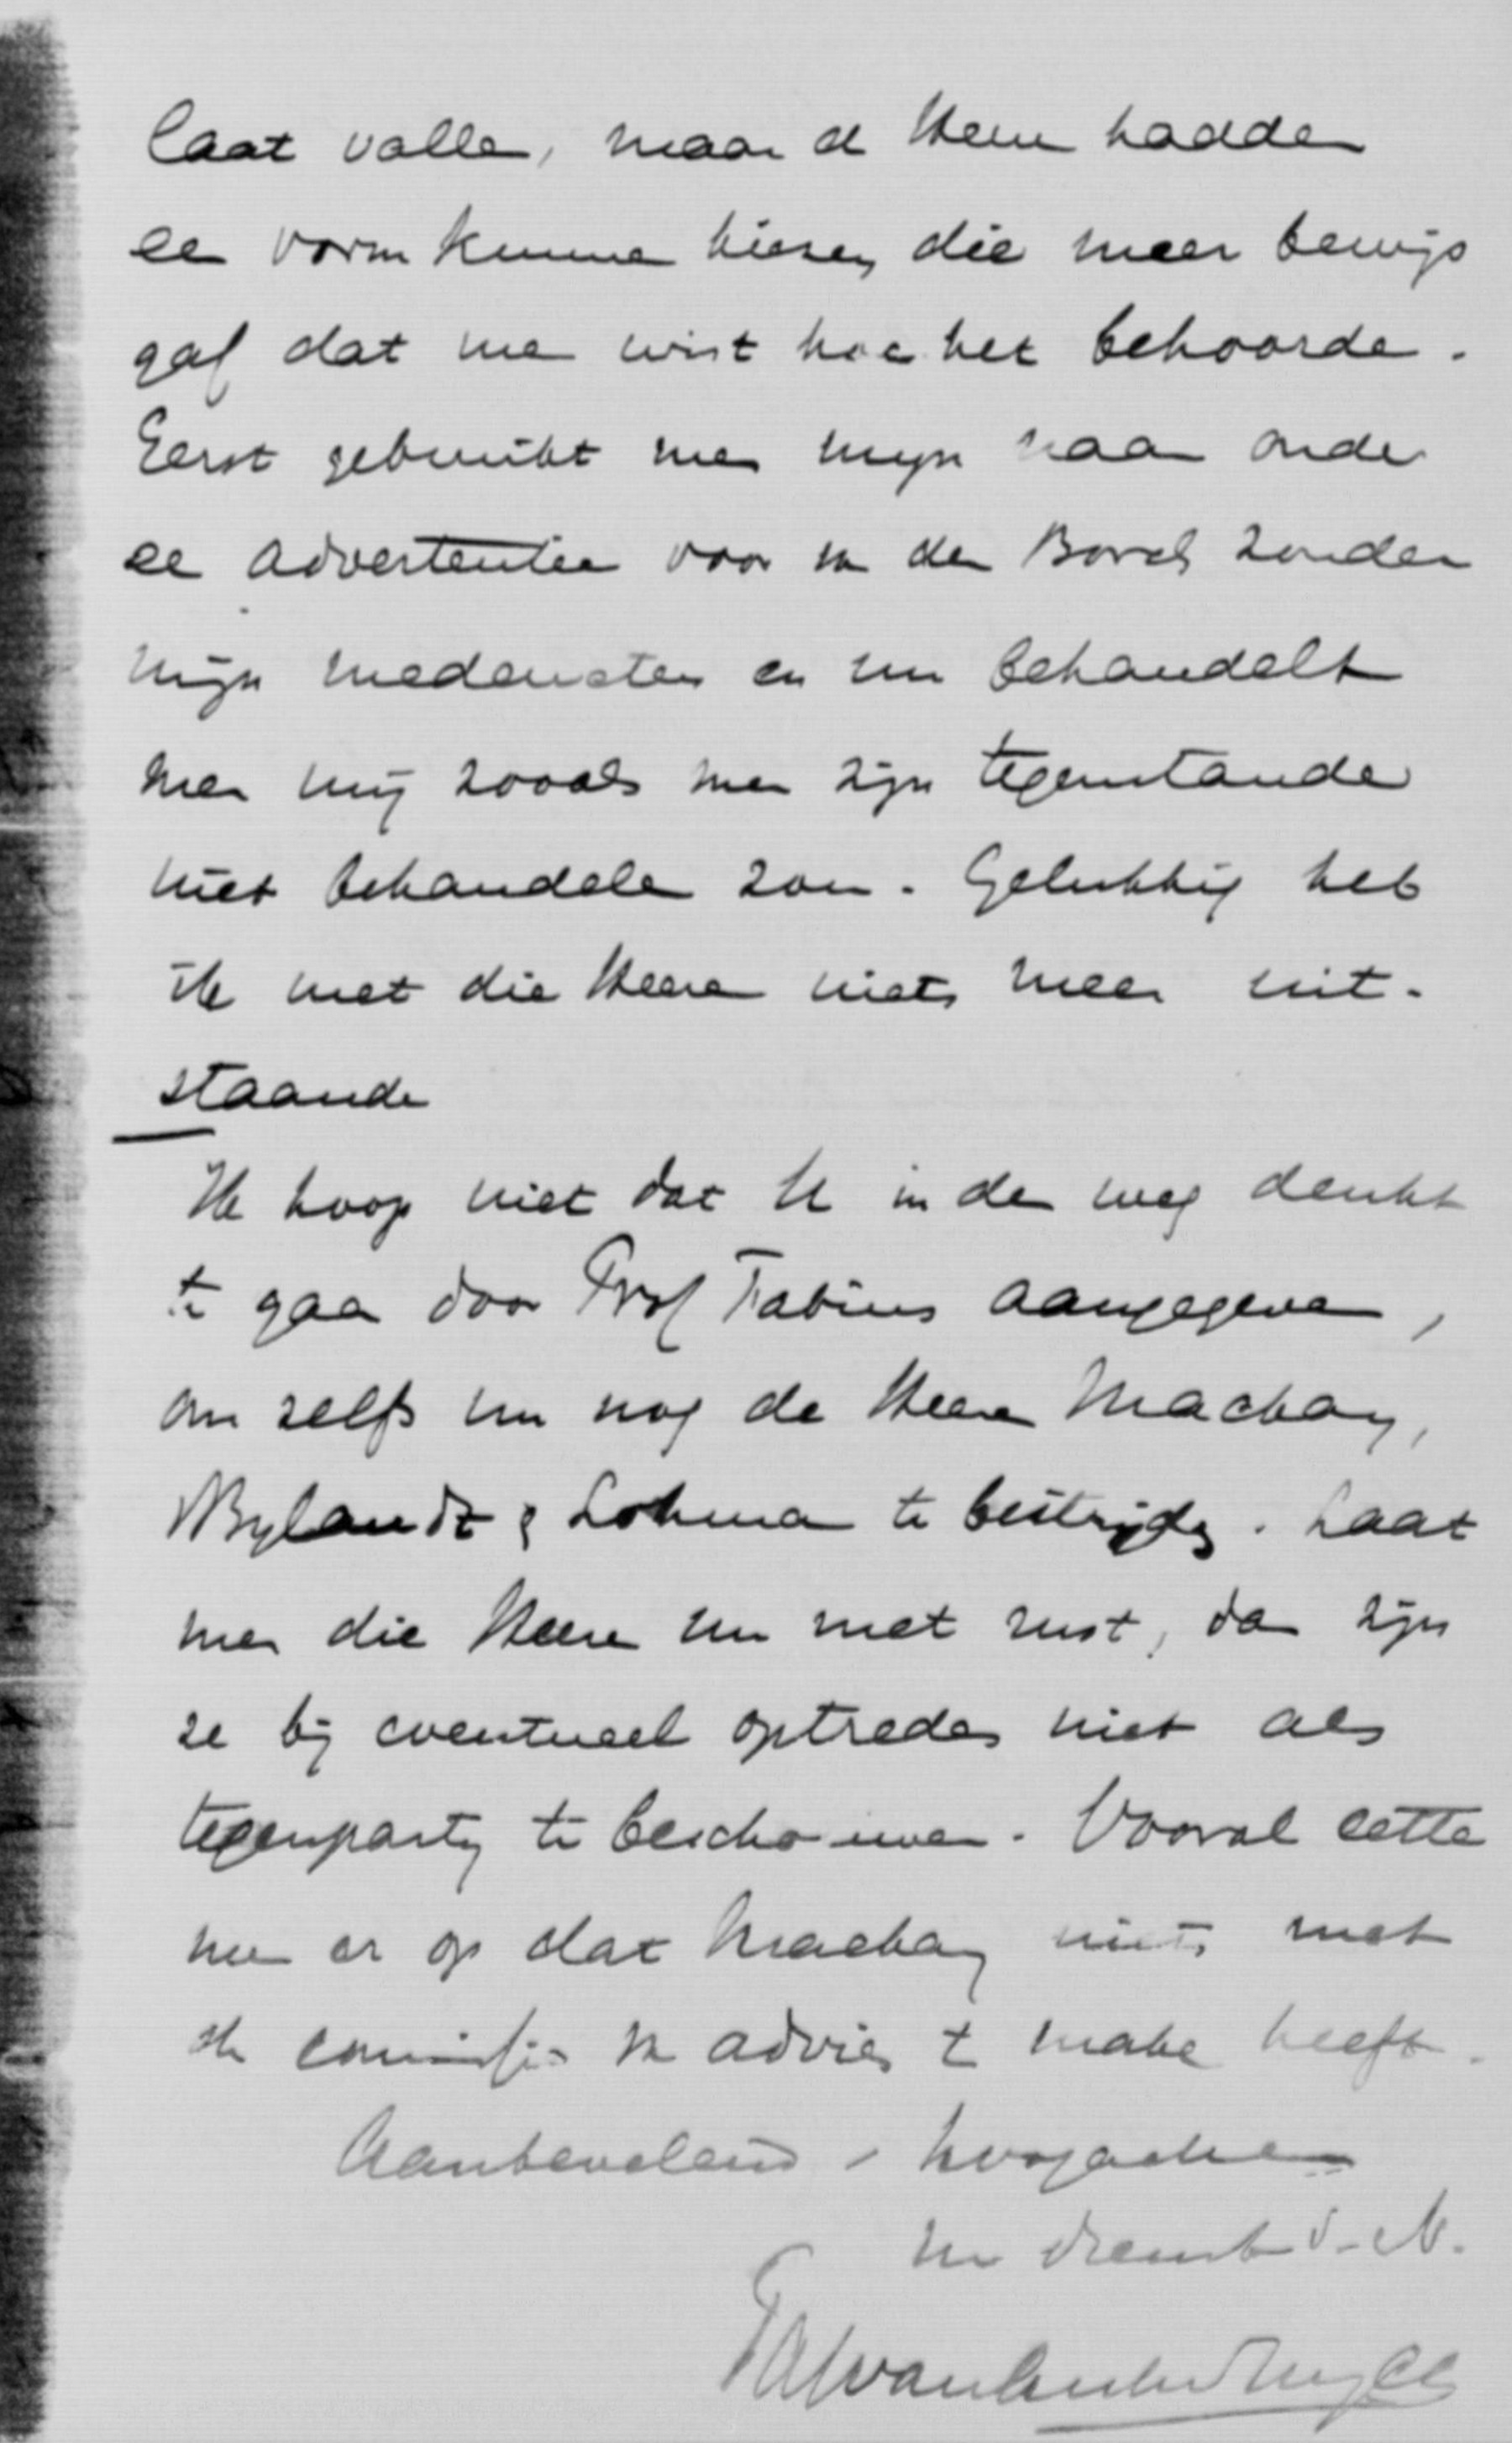 laat vallen, maar de Heeren hadden
een vorm kunnen kiezen die meer bewijs
gaf dat men wist hoe het behoorde.
Eerst gebruikt men mijn naam onder
een advertentie voor den Borch zonder
mijn medeweten en nu behandelt
men mij zooals men zijn tegenstander
niet behandelen zou. Gelukkig heb
ik met die Heeren niets meer uit-
staande
Ik hoop niet dat U in den weg denkt
te gaan door Prof Fabius aangegeven,
om zelfs nu nog de Heeren Mackay,
Bylandt & Lohman te bestrijden. Laat
men die Heeren nu met rust, dan zijn
ze bij eventueel optreden niet als
tegenparty te beschouwen. Vooral lette
men er op dat Mackay niets met
de commissie van advies te maken heeft.
Aanbevelend, hoogachtend
Uw dienstv. d.